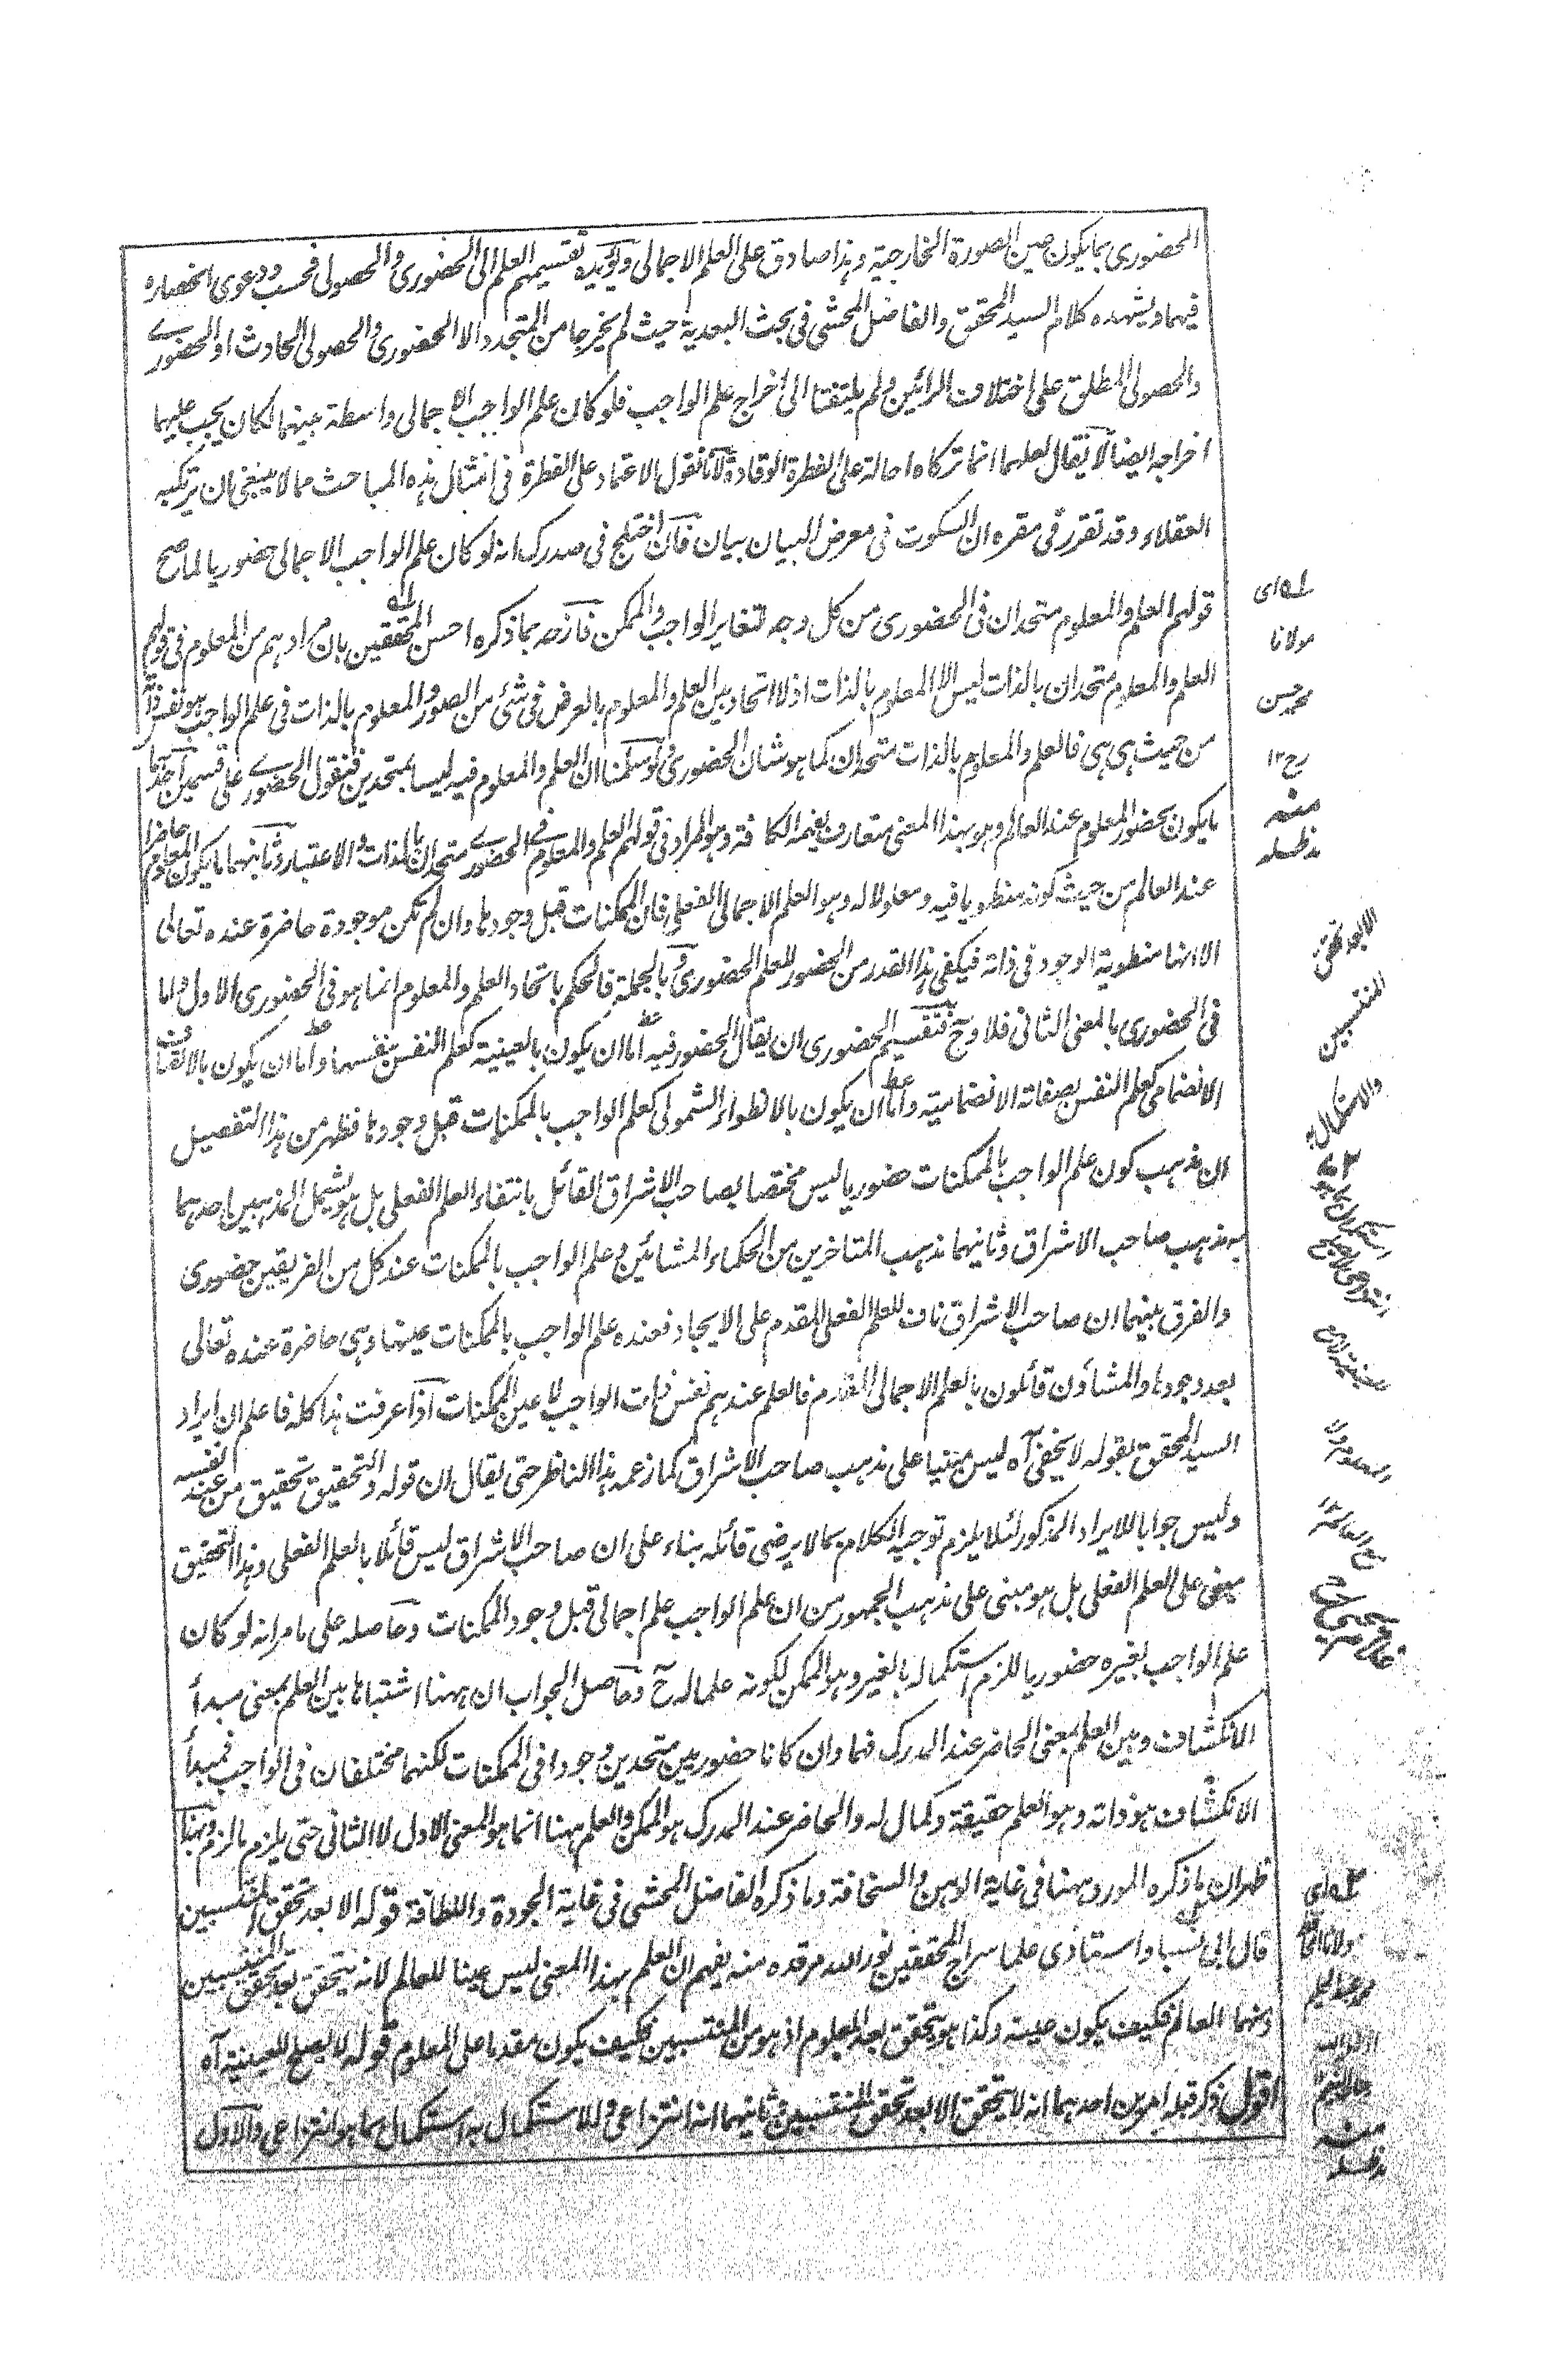 الحضوری بما یکون عین الصورة الخارجیة وہذا صادق علی العلم الاجمالی ویؤیده تقسیمهم العلم الی الحضوری والحصولی فحسب ودعوی انحصاره
فیهما ویشهده کلام السید المحقق والفاضل المحشی فی بحث البعدیة حیث لم یخرجا من المتجدد الا الحضوری والحصولی الحادث او الحضوری
والحصولی المطلق علی اختلاف الرائین ولم یلتفتا الی اخراج علم الواجب فلو کان علم الواجب الاجمالی واسطة بینهما لکان یجب علیهما
اخراجه ایضا لا یقال لعلهما انما ترکاه احالة علی الفطرة الوقادة لانا نقول الاعتماد علی الفطرة فی امثال ہذه المباحث مما لا ینبغی ان یرتکبه
العقلاء وقد تقرر فی مقره ان السکوت فی معرض البیان بیان فان اختلج فی صدرک انه لو کان علم الواجب الاجمالی حضوریا لما صح
قولهم العلم والمعلوم متحدان فی الحضوری من کل وجه لتغایر الواجب والممکن فازحه بما ذکره احسن المحققین بان مرادہم من المعلوم فی قولهم
العلم والمعلوم متحدان بالذات لیس الا المعلوم بالذات اذ لا اتحاد بین العلم والمعلوم بالعرض فی شئ من الصور والمعلوم بالذات فی علم الواجب ہو نفس ذاته
من حیث ہی ہی فالعلم والمعلوم بالذات متحدان کما ہو شان الحضوری ولو سلمنا ان العلم والمعلوم فیه لیسا بمتحدین فنقول الحضوری علی قسمین احدہما
ما یکون بحضور المعلوم عند العالم وہو بهذا المعنی متعارف یفهمه الکافة وہو المراد فی قولهم العلم والمعلوم فی الحضوری متحدان بالذات والاعتبار وثانیهما ما یکون المعلوم حاضرا
عند العالم من حیث کونه منطویا فیه ومعلولا له وہو العلم الاجمالی الفعلی فان الممکنات قبل وجودہا وان لم تکن موجودة حاضرة عنده تعالی
الا انها منطویة الوجود فی ذاته فیکفی ہذا القدر من الحضور للعلم الحضوری وبالجملة فالحکم باتحاد العلم والمعلوم انما ہو فی الحضوری الاول واما
فی الحضوری بالمعنی الثانی فلا وح فتقسیم الحضوری ان یقال الحضور فیه اما ان یکون بالعینیة کعلم النفس بنفسها واما ان یکون بالاتصاف
الانضمامی کعلم النفس بصفاته الانضمامیة واما ان یکون بالانطواء الشمولی کعلم الواجب بالممکنات قبل وجودہا فظهر من ہذا التفصیل
ان مذہب کون علم الواجب بالممکنات حضوریا لیس مختصا بصاحب الاشراق القائل بانتفاء العلم الفعلی بل ہو یشمل المذہبین احدہما
مذہب صاحب الاشراق وثانیهما مذہب المتاخرین من الحکماء المشائین وعلم الواجب بالممکنات عند کل من الفریقین حضوری
والفرق بینهما ان صاحب الاشراق ناف للعلم الفعلی المقدم علی الایجاد فعنده علم الواجب بالممکنات عینها وہی حاضرة عنده تعالی
بعد وجودہا والمشاؤن قائلون بالعلم الاجمالی المقدم فالعلم عندہم نفس ذات الواجب لا عین الممکنات اذا عرفت ہذا کله فاعلم ان ایراد
السید المحقق بقوله لا یخفی آه لیس مبنیا علی مذہب صاحب الاشراق کما زعمه ہذا الناظر حتی یقال ان قوله والتحقیق تحقیق من عند نفسه
ولیس جوابا للایراد المذکور لئلا یلزم توجیه الکلام بما لا یرضی قائله بناء علی ان صاحب الاشراق لیس قائلا بالعلم الفعلی وہذا التحقیق
مبنی علی العلم الفعلی بل ہو مبنی علی مذہب الجمهور من ان علم الواجب علم اجمالی قبل وجود الممکنات وحاصله علی ما مر انه لو کان
علم الواجب بغیره حضوریا للزم استکماله بالغیر وہو الممکن لکونه علما له ح وحاصل الجواب ان ههنا اشتباها بین العلم بمعنی مبدأ
الانکشاف وبین العلم بمعنی الحاضر عند المدرک فهما وان کانا حضوریین متحدین وجودا فی الممکنات لکنهما مختلفان فی الواجب فمبدأ
الانکشاف ہو ذاته وہو العلم حقیقة وکمال له والحاضر عند المدرک ہو الممکن والعلم ههنا انما ہو المعنی الاول لا الثانی حتی یلزم ما لزم وبهذا
ظهر ان ما ذکره المورد ههنا فی غایة الوہن والسخافة وما ذکره الفاضل المحشی فی غایة الجودة واللطافة قوله الا بعد تحقق المنتسبین
قال ابی نسبا واستاذی علما سراج المحققین نور الله مرقده منه یفهم ان العلم بهذا المعنی لیس عینا للعالم لانه یتحقق بعد تحقق المنتسبین
ومنهما العالم فکیف یکون عینه وکذا ہو یتحقق بعد المعلوم اذ ہو من المنتسبین فکیف یکون مقدما علی المعلوم قوله لا یصلح للعینیة آه
اقول ذکر قبله امرین احدہما انه لا یتحقق الا بعد تحقق المنتسبین وثانیهما انه انتزاعی وللاستکمال به استکمال بما ہو انتزاعی والاول
له ای
مولانا
محمد حسن
رح ۱۲
منه
مدظله
الا بعد تحقق
المنتسبین
والاستکمال به
ای
مولانا الحافظ
محمد عبد الحلیم
منه
مدظله